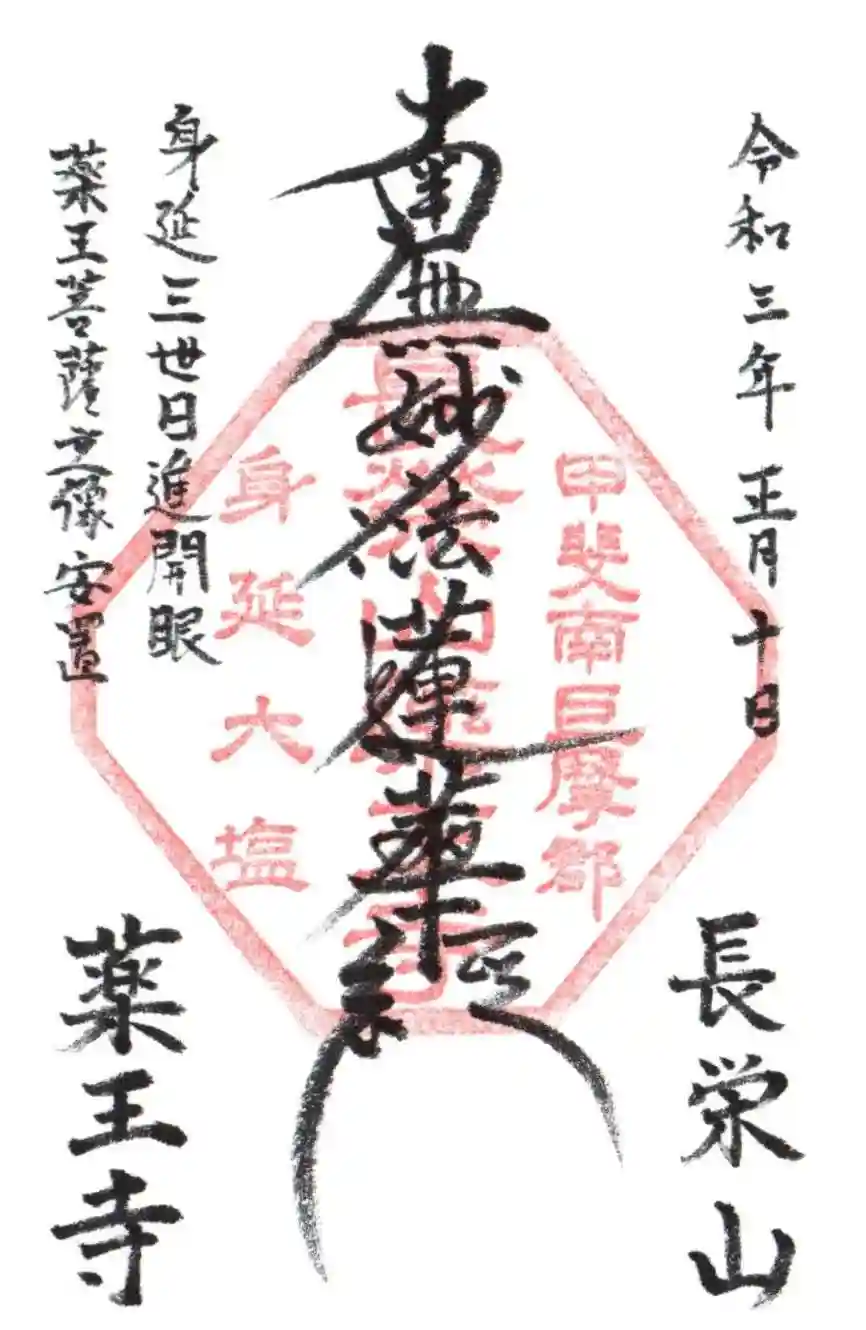 令和三年正月十日
長栄山
南無妙法蓮華経
身延三世日進開眼
薬王菩薩之像安置
薬王寺
甲斐南巨摩郡
長榮山薬王寺
身延大塩